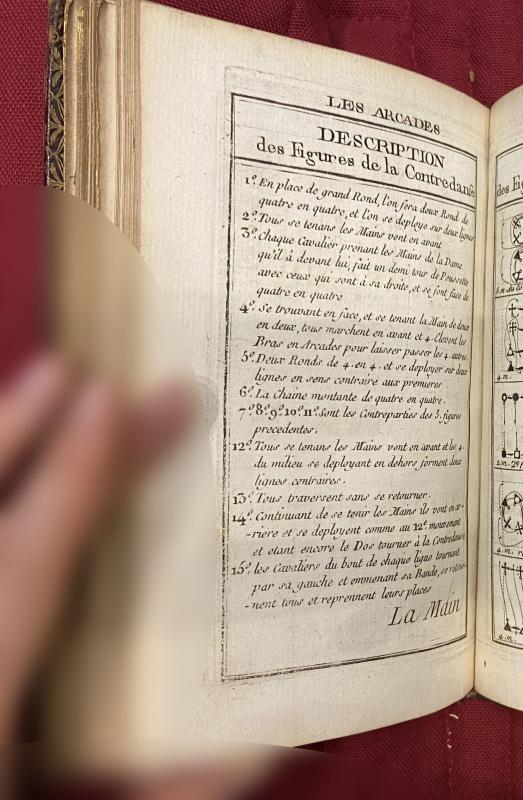 LES ARCADES
DESCRIPTION
des Figures de la Contredanse
1º. En place de grand Rond, l'on fera deux Rond de
quatre en quatre, et l'on se deploye sur deux lignes
2º. Tous se tenans les Mains vont en avant
3º. Chaque Cavalier prenant les Mains de la Dame
qu'il à devant lui, fait un demi tour de Poussette
avec ceux qui sont à sa droite, et se font face de
quatre en quatre
4º. Se trouvant en face, et se tenant la Main de deux
en deux, tous marchent en avant et 4. Elevent les
Bras en Arcades pour laisser passer les 4. autres.
5º. Deux Ronds de 4. en 4. et se deployer sur deux
lignes en sens contraire aux premieres
6º. La Chaine montante de quatre en quatre.
7º. 8º. 9º. 10º. 11º. Sont les Contreparties des 5. figures
precedentes.
12º. Tous se tenans les Mains vont en avant et les 4.
du milieu se deployant en dehors forment deux
lignes contraires.
13º. Tous traversent sans se retourner.
14º. Continuant de se tenir les Mains ils vont en ar-
-riere et se deployent comme au 12º. mouvement
et etant encore le Dos tourner à la Contredanse
15º. les Cavaliers du bout de chaque ligne tournant
par sa gauche et emmenant sa Bande, se retour-
-nent tous et reprennent leurs places
La Main
4. m.
4. m.
4. m.